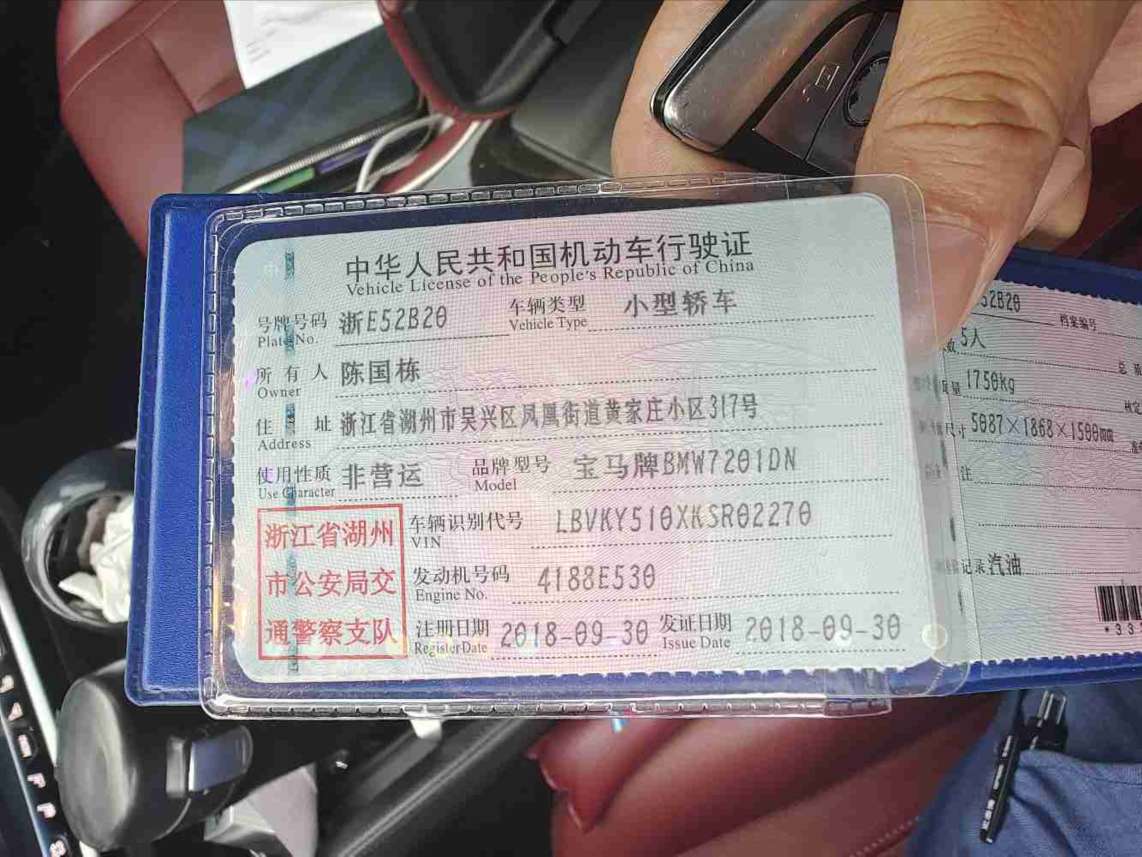 中华人民共和国机动车行驶证
Vehicle License of the People's Republic of China
号牌号码 浙E52B20 车辆类型 小型轿车
Plate No. Vehicle Type
所有人 陈国栋
Owner
住址 浙江省湖州市吴兴区凤凰街道黄家庄小区317号
Address
使用性质 非营运 品牌型号 宝马牌BMW7201DN
Use Character Model
浙江省湖州
市公安局交
通警察支队
车辆识别代号 LBVKY510XKSR02270
VIN
发动机号码 4188E530
Engine No.
注册日期 2018-09-30 发证日期 2018-09-30
Register Date Issue Date
52B20 档案编号
5人
总
质量 1750kg 核定
尺寸 5087×1868×1500mm
注
记录 汽油
*33